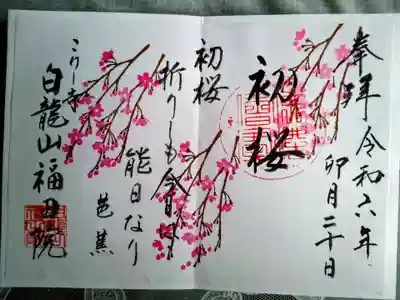 奉拝
令和六年
卯月二十日
初桜
初桜
折りしも今日は
能日なり
芭蕉
こけし寺
白龍山福田院